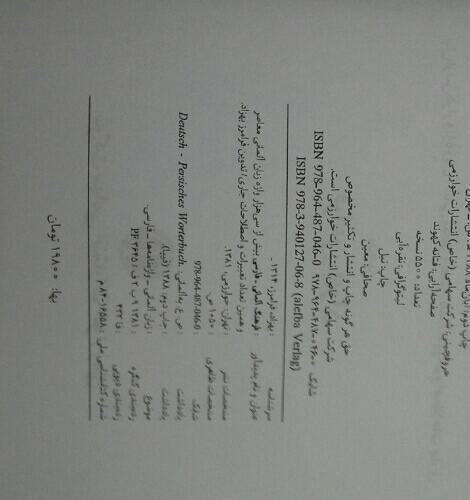 چاپ دوم: آبان‌ماه ۱۳۸۸
حروفچینی: شرکت سهامی (خاص) انتشارات خوارزمی
صفحه‌آرایی: هاله کهوند
تعداد: ۵۵۰۰ نسخه
لیتوگرافی: نقره‌آبی
چاپ: نیل
صحافی: معین
حق هرگونه چاپ و انتشار و تکثیر مخصوص
شرکت سهامی (خاص) انتشارات خوارزمی است.
شابک ۰-۰۴۶-۴۸۷-۹۶۴-۹۷۸ ISBN 978-964-487-046-0
ISBN 978-3-940127-06-8 (alefba Verlag)
سرشناسه : بهزاد، فرامرز، ۱۳۱۴ -
عنوان و نام پدیدآور : فرهنگ آلمانی - فارسی: بیش از سی‌هزار واژه زبان آلمانی معاصر
و همین تعداد تعبیرات و اصطلاحات جاری/ تدوین فرامرز بهزاد.
مشخصات نشر : تهران: خوارزمی، ۱۳۸۱.
مشخصات ظاهری : ۱۰۵۰ ص.
شابک : 978-964-487-046-0
یادداشت : ص. ع. به آلمانی: Deutsch - Persisches Worterbuch.
یادداشت : چاپ دوم: ۱۳۸۸ (فیپا).
موضوع : زبان آلمانی -- واژه‌نامه‌ها -- فارسی.
رده‌بندی کنگره : ۱۳۸۱ ۴ ف ۲ ب / PF ۳۶۴۵
رده‌بندی دیویی : ۴۳۳ فا
شماره کتابشناسی ملی : ۱۶۵۵۸-۸۴م
بها: ۱۹۸۰۰ تومان